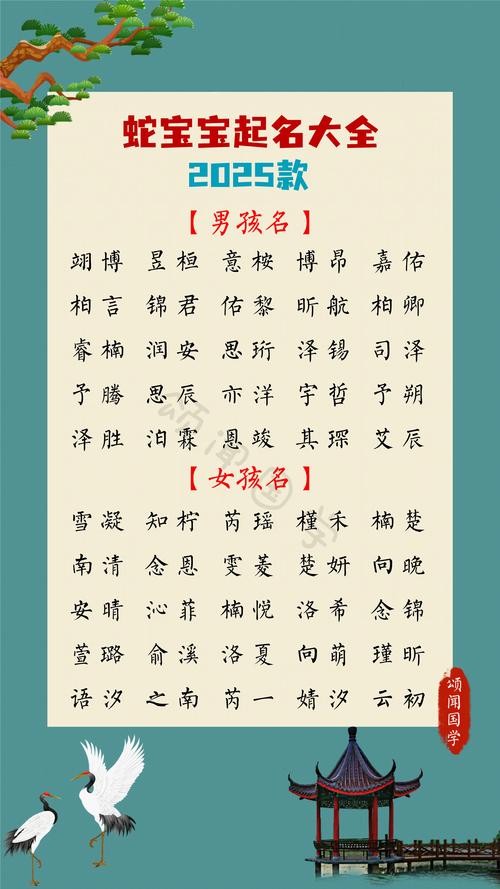 蛇宝宝起名大全
2025款
【男孩名】
翊博 昱桓 意桉 博昂 嘉佑
柏言 锦君 佑黎 昕航 柏卿
睿楠 润安 思珩 泽锡 司泽
予腾 思辰 亦洋 宇哲 予朔
泽胜 泊霖 恩竣 其琛 艾辰
【女孩名】
雪凝 知柠 芮瑶 槿禾 楠楚
南清 念恩 雯菱 楚妍 向晚
安晴 沁菲 楠悦 洛希 念锦
萱璐 俞溪 洛夏 向萌 瑾昕
语汐 之南 芮一 婧汐 云初
颂闻国学
颂闻国学